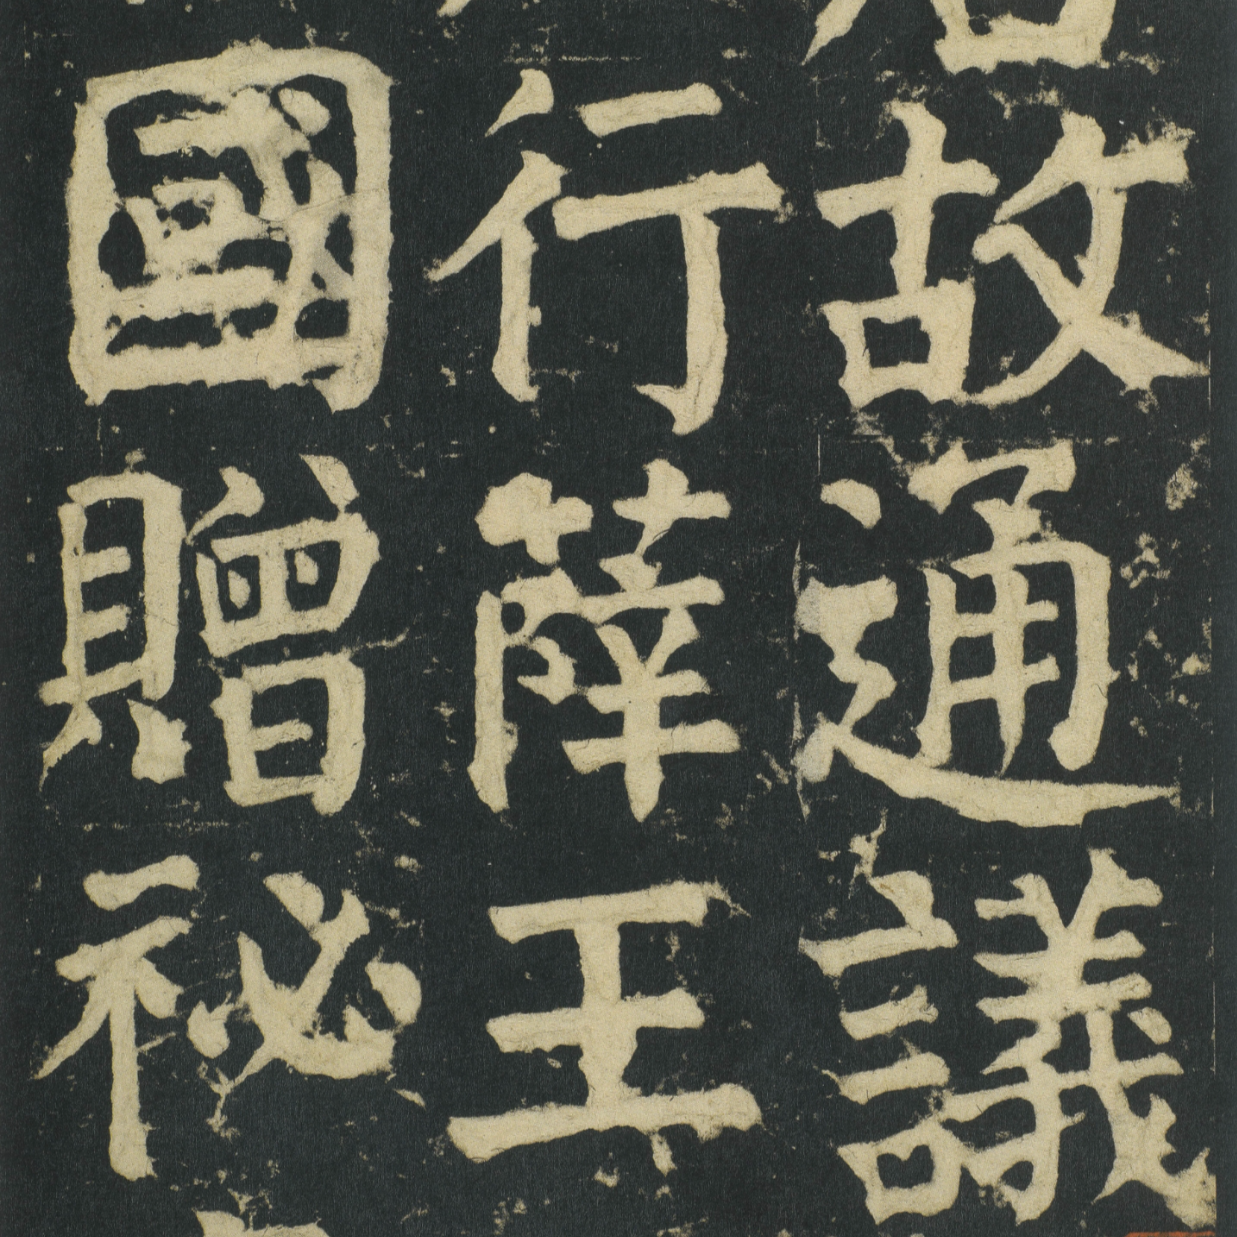 故通議
行薛王
國贈祕